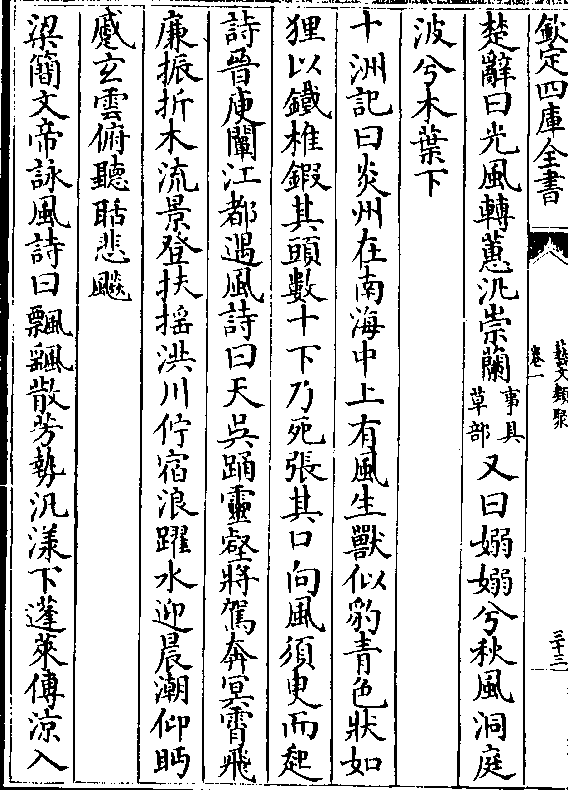 欽定四庫全書
藝文類聚
卷一
三十三
楚辭曰光風轉蕙汎崇蘭事具草部又曰嫋嫋兮秋風洞庭
波兮木葉下
十洲記曰炎州在南海中上有風生獸似豹青色狀如
狸以鐵椎鍜其頭數十下乃死張其口向風須臾而起
詩晉庾闡江都遇風詩曰天吳踊靈壑將駕奔冥霄飛
廉振折木流景登扶揺洪川佇宿浪躍水迎晨潮仰眄
蹙玄雲俯聽聒悲飇
梁簡文帝詠風詩曰飄飖散芳勢汎漾下蓬萊傳涼入